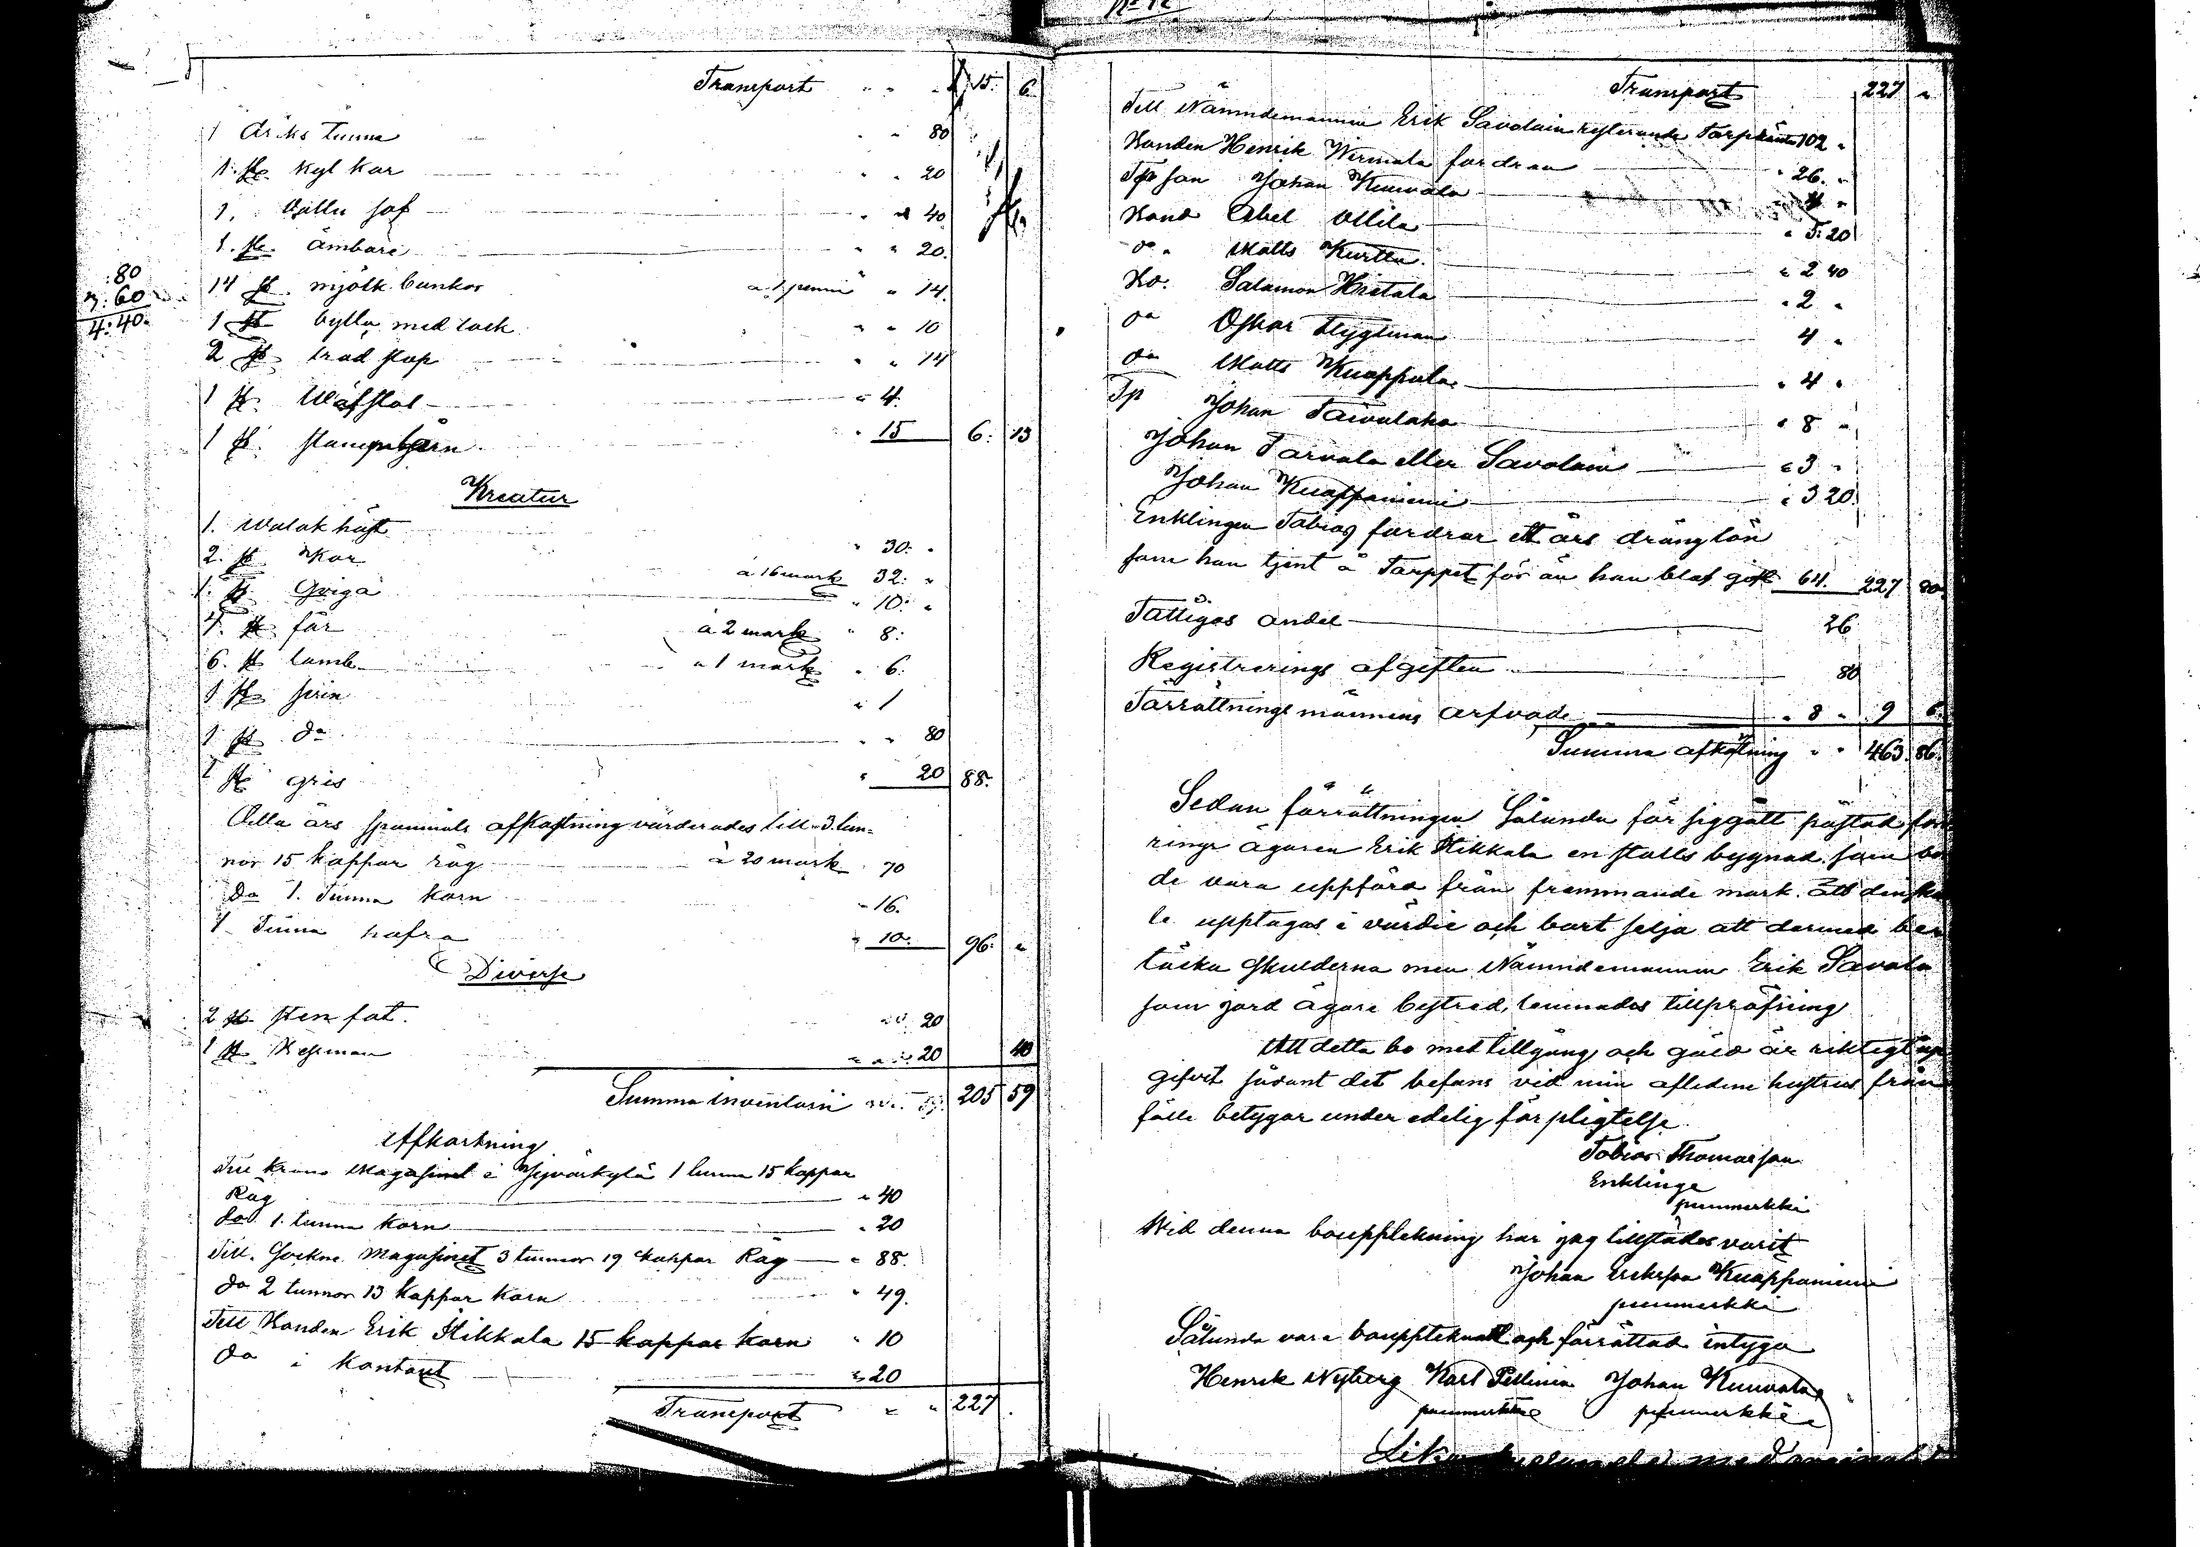 Transport " " " 15. 6.
1 Driks tunna " " 80
1. st. Kyl kar " " 20
1. " 40
1. st. ämbare " " 20.
14 st. mjölk bunkor a 1 penni " 14.
1 st bytta med lock " " 10
2 st. trad stop " " 14
1 st. Wäfstol " 4.
1 st. " 15 6: 13
:80
3:60
4:40.
Kreatur
1. Walak häst " 30: "
2. st Kor à 16 mark 32: "
1. st Qviga " 10: "
4. st får à 2 mark " 8:
6. st lamb a 1 mark " 6:
1 st svin " 1
1 st do " " 80
1 st gris " 20 88.
Detta års spanmåls afkastning värderades till 3 tun-
nor 15 kappar råg à 20 mark 70
Do 1. Tunna korn " 16.
1 Tunna hafra " 10. 96: "
Diverse
2 st. sten fat. 20
1 st 20 40
Summa inventari 205 59
Affkortning
Till krono Magasinet i 1 tunna 15 kappar
Råg " 40
do 1. tunna korn " 20
Till. Sockne Magasinet 3 tunnor 19 kappar Råg " 88.
do 2 tunnor 13 kappar korn " 49.
Till Bonden Erik Hikkala 15 kappar korn " 10
do i kontant " 20
Transport " " 227.
No 12
Transport 227 "
Till Nämndemannen Erik Savolain resterande 102 "
Bonden Henrik Wirmala fordran " 26. "
Johan Kuuvala " 4 "
Bond Abel Ollila " 5:20
do " Matts Kurttu " 2 40
Bo. Salamon Hietala " 2 "
do Oskar Flygtman 4 "
do Matts Knappala " 4 "
Tp Johan Taivalaho " 8 "
Johan Tarvala eller Savolain " 3 "
Johan Knappaniemi " 3 20.
Enklingen Tobias fordrar ett års dränglön
som han tjent å Torppet för än han blef gift 64. 227 80.
Fattigas andel 26
Registrerings afgiften 80
Förrättnings männens arfvode " 8 " 9 6.
Summa afkortning " " 463. 86.
Sedan förrättningen Sålunda för siggått påstod ford
rings ägaren Erik Hikkala en stalls bygnad som bor
de vara uppförd från frammande mark. att den sku
le upptagas i värdie och bort selja att dermed be
täcka Skulderna men Nämndemannen Erik Savola
som jord ägare bestred, lemnades till pröfning
Att detta bo med tillgång och gäld är riktigt up
gifvit sådant det befans vid min aflidne hustrus från
fälle betygar under edelig förpligtelse.
Tobias Thomasson
Enklinge
puumerkki
Wid denna bouppteckning har jag tillstädes varit
Johan Eriksson Knappaniemi
puumerkki
Sålunda vara bouppteknatt och förrättad intyga
Henrik Nyberg Karl Pellinen Johan Kuuvala
puumerkki puumerkki